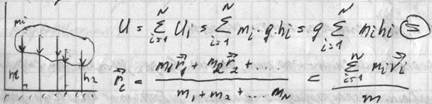 mi
U = \sum_{i=1}^{N} U_i = \sum_{i=1}^{N} m_i \cdot g \cdot h_i = g \cdot \sum_{i=1}^{N} m_i h_i =
h1 h2
\vec{r}_c = \frac{m_1 \vec{r}_1 + m_2 \vec{r}_2 + \ldots}{m_1 + m_2 + \ldots m_N} = \frac{\sum_{i=1}^{N} m_i \vec{r}_i}{m}